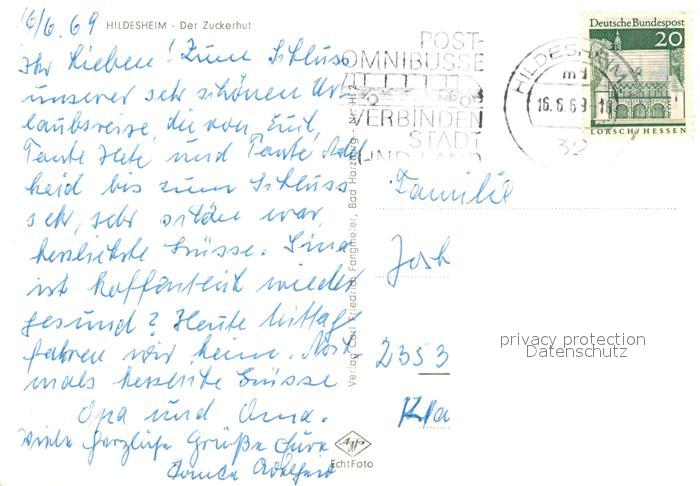 16/6.69
HILDESHEIM - Der Zuckerhut
Ihr Lieben! Zum Schluss
unserer sehr schönen Ur-
laubsreise, die von Emil,
Tante Hete und Tante Adel
heid bis zum Schluss
sehr, sehr schön war,
herzlichste Grüsse.
ist hoffentlich wieder
gesund? Heute Mittag
fahren wir heim. Noch-
mals herzliche Grüsse
Opa und Oma.
Viele herzliche Grüße Eure
Tante Adelheid
Verlag Carl Friedrich Fangmeier, Bad Harzburg - Nr. Hi
EchtFoto
POST-
OMNIBUSSE
VERBINDEN
STADT
UND LAND
HILDESHEIM
16.6.69-18
32
Deutsche Bundespost
20
LORSCH/HESSEN
Familie
2353
privacy protection
Datenschutz